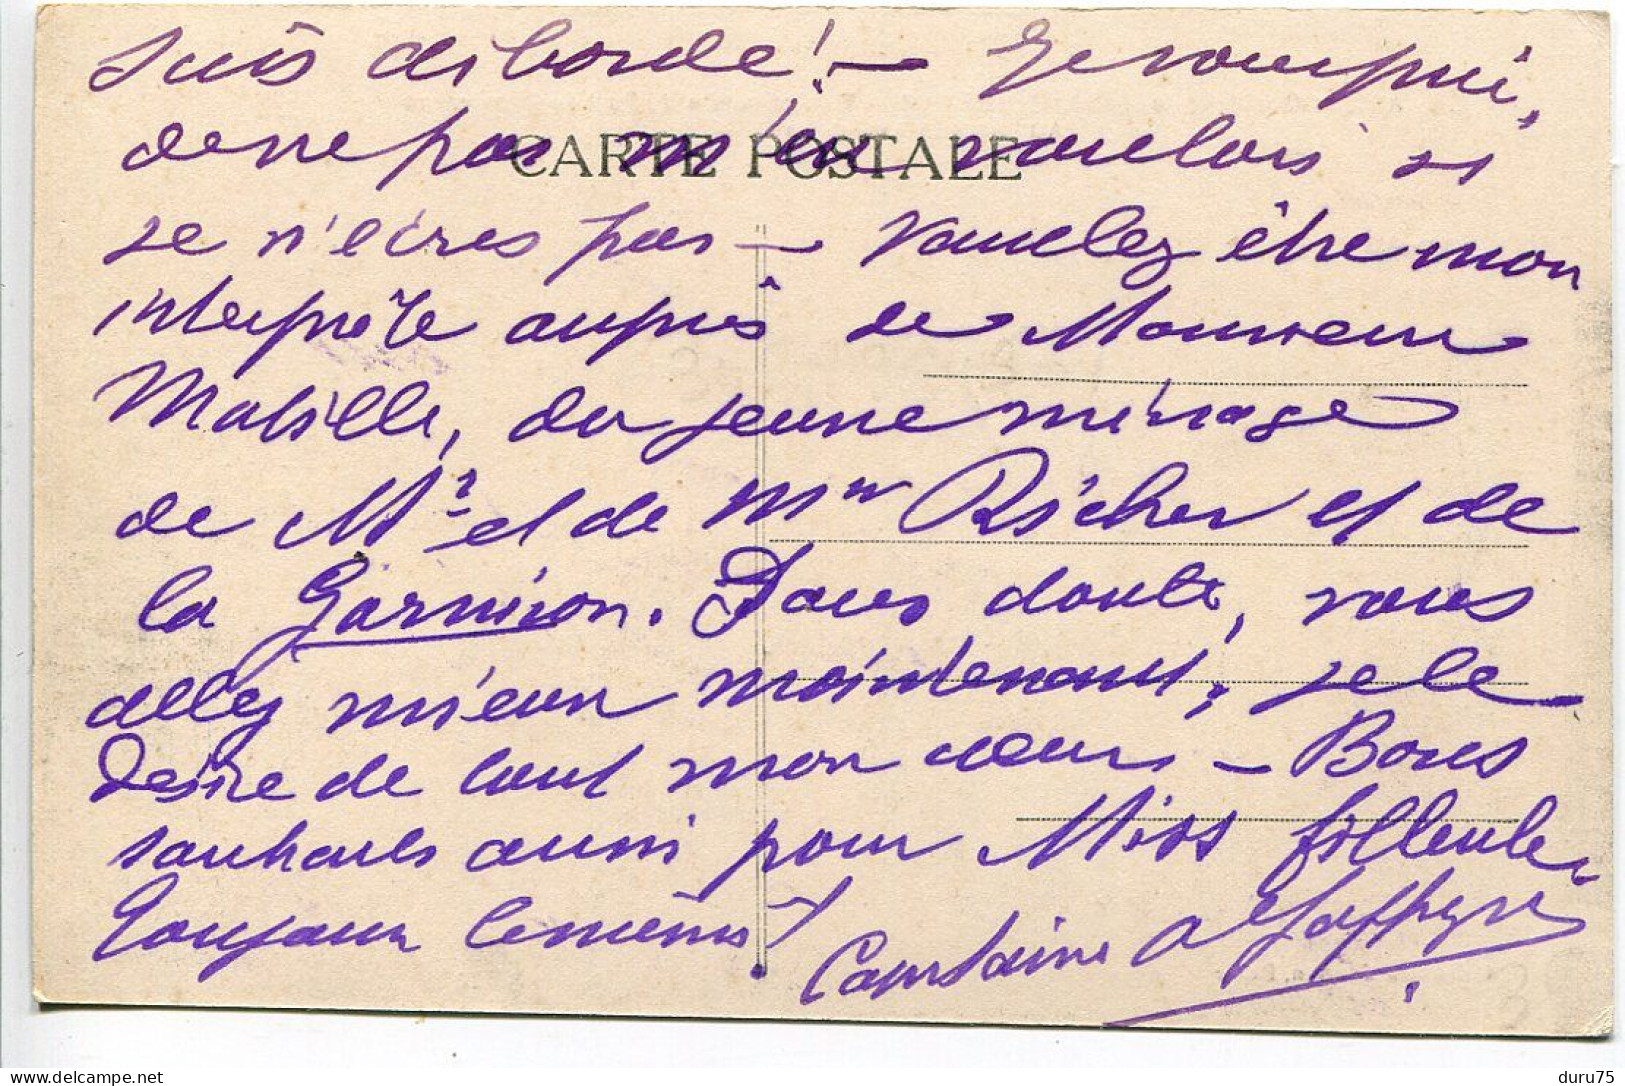 suis débordé! — Je vous prie,
de ne pas m'en vouloir si
CARTE POSTALE
je n'écris pas — Voulez être mon
interprète auprès de Monsieur
Mabille, du jeune ménage
de Mr et de Mme Richer et de
la Garnison. Sans doute, vous
allez mieux maintenant, je le
désire de tout mon cœur — Bons
souhaits aussi pour Miss filleule,
Toujours le même
Capitaine A
delcampe.net
duru75